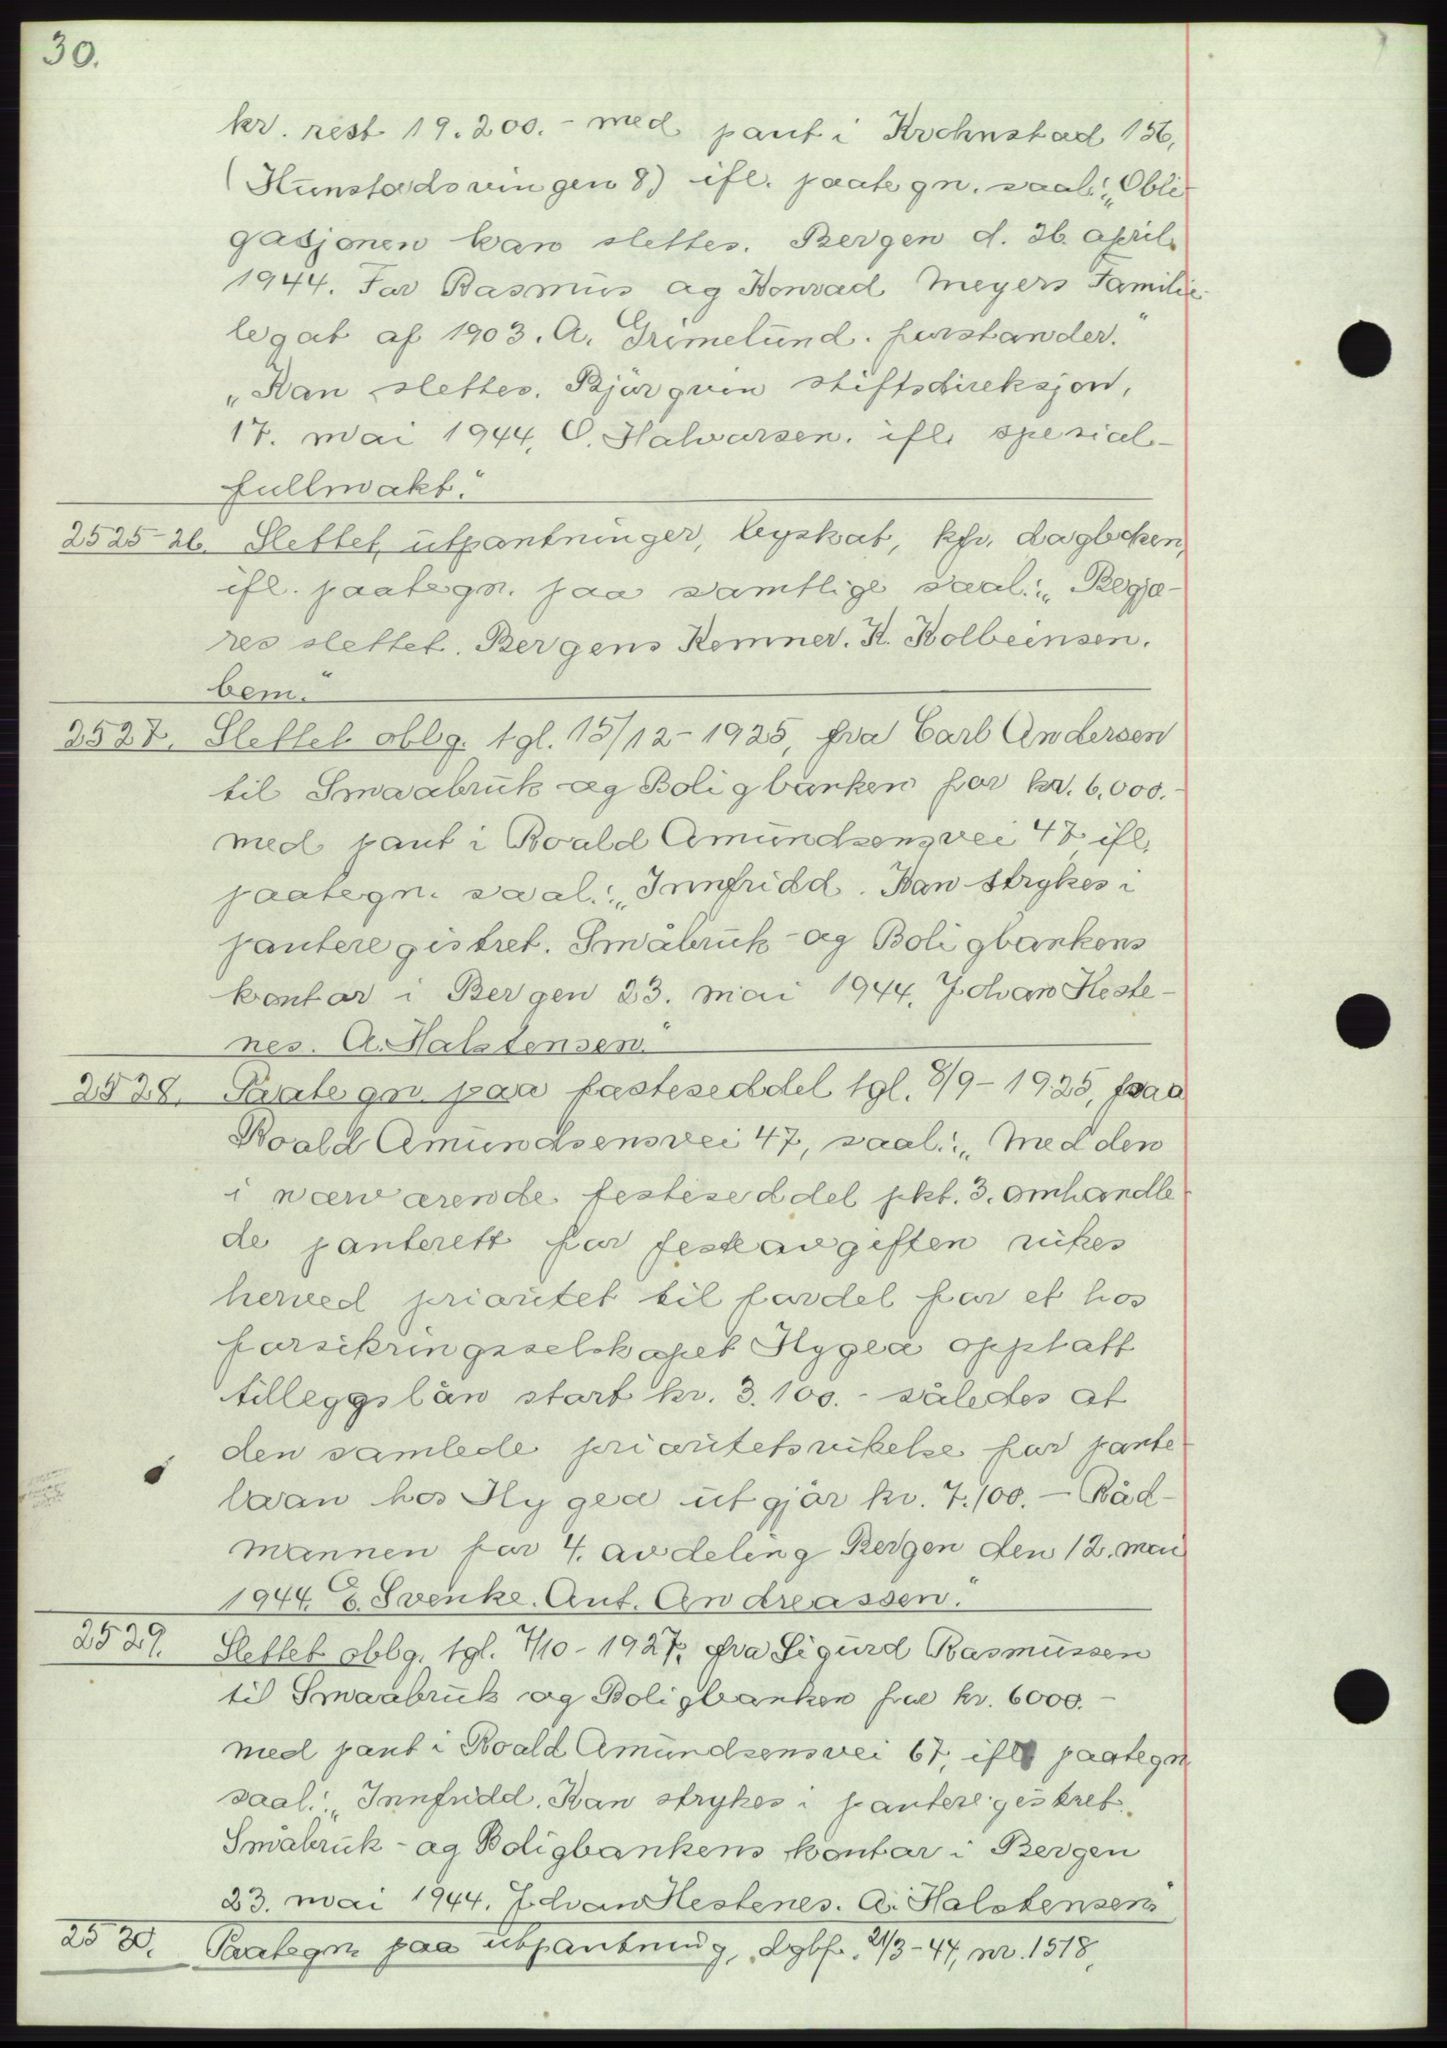 30.
kr. rest 19.200.- med pant i Krohnstad 156,
(Hunstadsvingen 8) ifl. paategn. saal.: „Obli-
gasjonen kan slettes. Bergen d. 26. april
1944. For Rasmus og Konrad Meyers Familie-
legat af 1903. A. Grimelund. forstander."
„Kan slettes. Bjørgvin stiftsdireksjon,
17. mai 1944, O. Halvorsen. ifl. spesial-
fullmakt."
2525-26. Slettet utpantninger, byskat, kfr. dagboken,
ifl. paategn. paa samtlige saal.: „Begjæ-
res slettet. Bergens Kemner. K. Kolbeinsen.
bem."
2527. Slettet oblg. tgl. 15/12-1925, fra Carl Andersen
til Smaabruk- og Boligbanken for kr. 6.000.-
med pant i Roald Amundsensvei 47, ifl.
paategn. saal.: „Innfridd. Kan strykes i
panteregistret. Småbruk- og Boligbankens
kontor i Bergen 23. mai 1944. Johan Heste-
nes. A. Halstensen."
2528. Paategn. paa festeseddel tgl. 8/9-1925, paa
Roald Amundsensvei 47, saal.: „Med den
i nærværende festeseddel pkt. 3. omhandle-
de panterett for festeavgiften vikes
herved prioritet til fordel for et hos
forsikringsselskapet Hygea opptatt
tilleggslån stort kr. 3.100.- således at
den samlede prioritetsvikelse for pante-
laan hos Hygea utgjør kr. 7.100.- Råd-
mannen for 4. avdeling Bergen den 12. mai
1944. E. Svenke. Ant. Andreassen."
2529. Slettet oblg. tgl. 7/10-1927, fra Sigurd Rasmussen
til Smaabruk og Boligbanken for kr. 6000.-
med pant i Roald Amundsensvei 67, ifl. paategn.
saal.: „Innfridd. Kan strykes i panteregistret.
Småbruk- og Boligbankens kontor i Bergen
23. mai 1944. Johan Hestenes. A. Halstensen."
2530. Paategn. paa utpantning, dgbf. 21/3-44, nr. 1518,